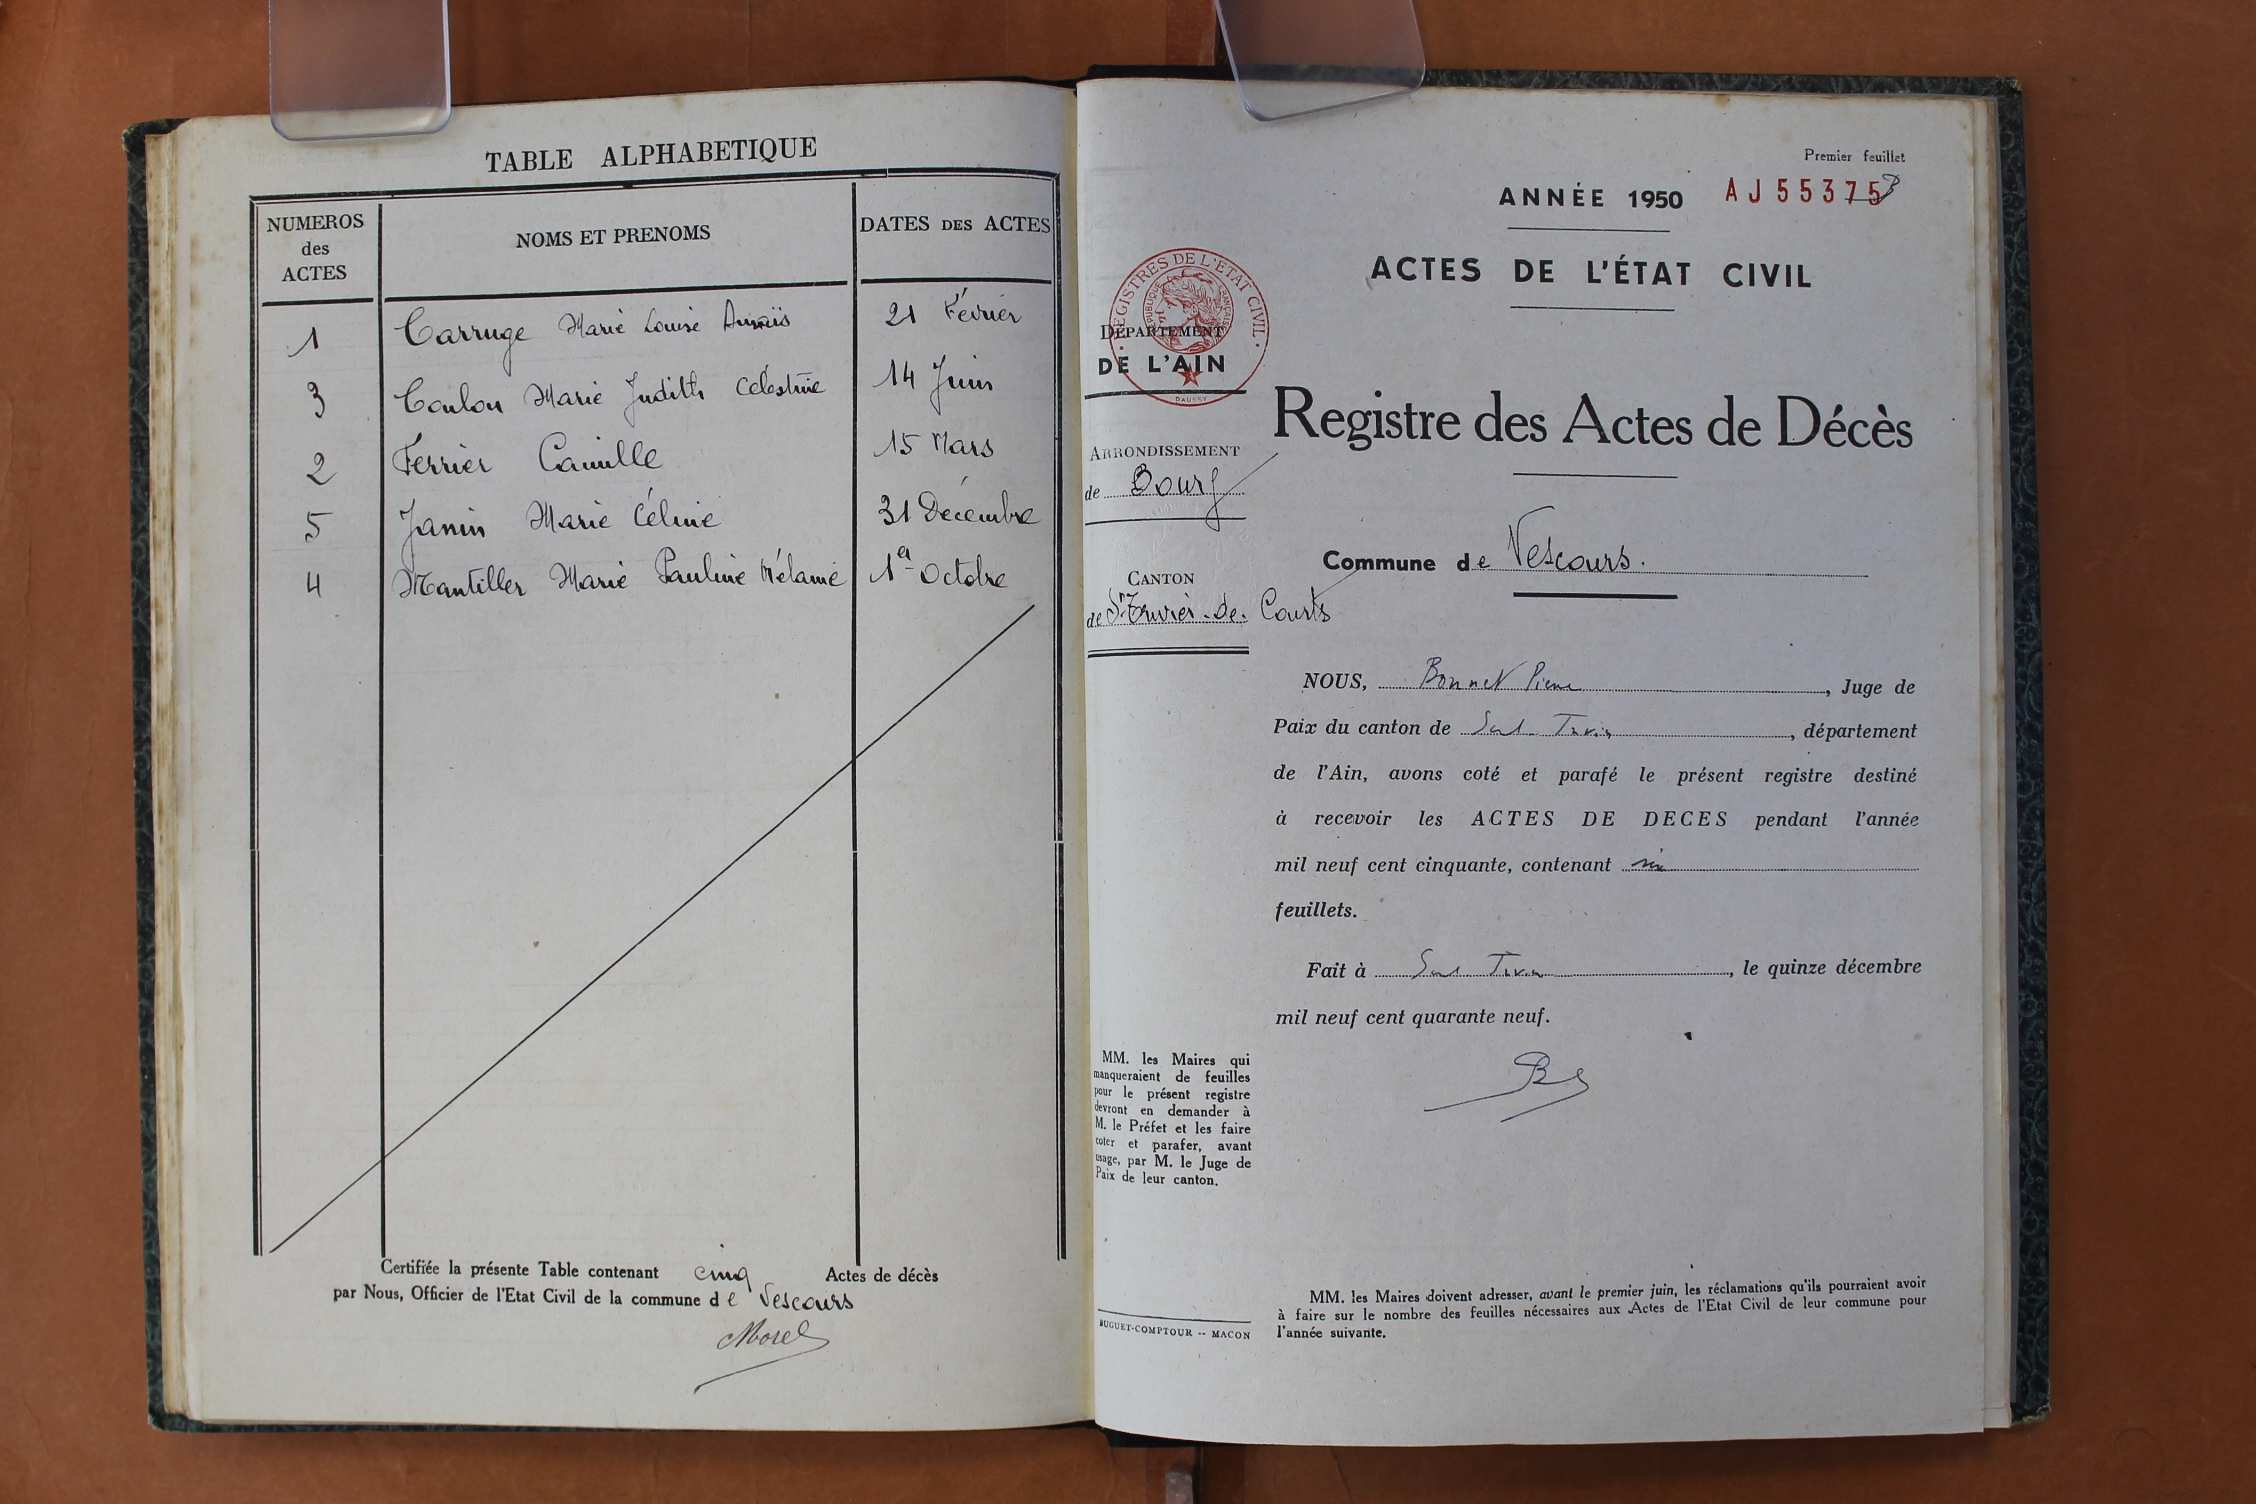 TABLE ALPHABETIQUE
NUMEROS des ACTES
NOMS ET PRENOMS
DATES DES ACTES
1 Carruge Marie Louise Anaïs 21 Février
3 Coulon Marie Judith Célestine 14 Juin
2 Ferrier Camille 15 Mars
5 Janin Marie Céline 31 Décembre
4 Mantiller Marie Pauline Mélanie 1er Octobre
Certifiée la présente Table contenant cinq Actes de décès
par Nous, Officier de l'Etat Civil de la commune de Vescours
Morel
Premier feuillet
ANNÉE 1950 AJ55375
ACTES DE L'ÉTAT CIVIL
REGISTRES DE L'ETAT CIVIL
REPUBLIQUE FRANÇAISE
DAUSSY
DÉPARTEMENT
DE L'AIN
Registre des Actes de Décès
ARRONDISSEMENT
de Bourg
Commune de Vescours.
CANTON
de St Trivier-de-Courts
NOUS, Bonnet Pierre, Juge de
Paix du canton de Saint Trivier, département
de l'Ain, avons coté et parafé le présent registre destiné
à recevoir les ACTES DE DECES pendant l'année
mil neuf cent cinquante, contenant six
feuillets.
Fait à Saint Trivier, le quinze décembre
mil neuf cent quarante neuf.
MM. les Maires qui
manqueraient de feuilles
pour le présent registre
devront en demander à
M. le Préfet et les faire
coter et parafer, avant
usage, par M. le Juge de
Paix de leur canton.
BUGUET-COMPTOUR -- MACON
MM. les Maires doivent adresser, avant le premier juin, les réclamations qu'ils pourraient avoir
à faire sur le nombre des feuilles nécessaires aux Actes de l'Etat Civil de leur commune pour
l'année suivante.